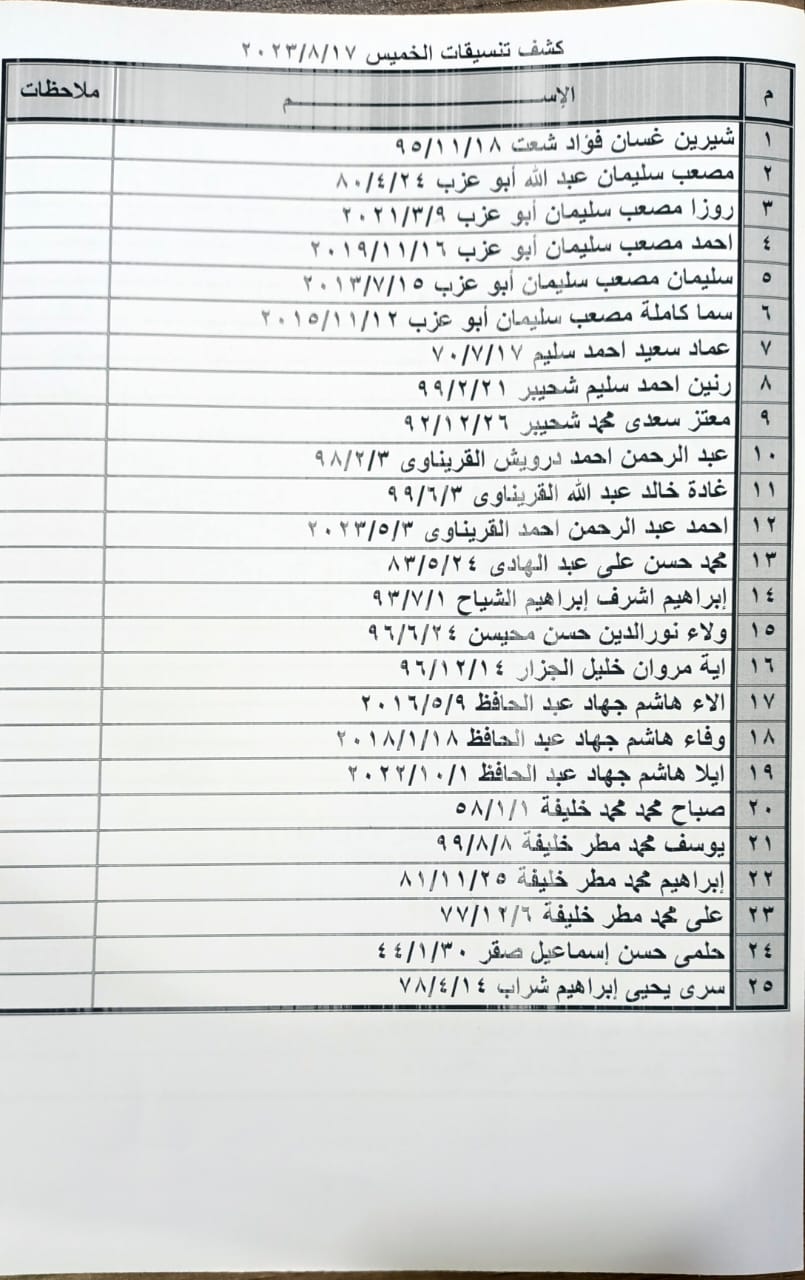 كشف تنسيقات الخميس ٢٠٢٣/٨/١٧
م الإســـــــــم ملاحظات
١ شيرين غسان فؤاد شعت ٩٥/١١/١٨
٢ مصعب سليمان عبد الله أبو عزب ٨٠/٤/٢٤
٣ روزا مصعب سليمان أبو عزب ٢٠٢١/٣/٩
٤ احمد مصعب سليمان أبو عزب ٢٠١٩/١١/١٦
٥ سليمان مصعب سليمان أبو عزب ٢٠١٣/٧/١٥
٦ سما كاملة مصعب سليمان أبو عزب ٢٠١٥/١١/١٢
٧ عماد سعيد احمد سليم ٧٠/٧/١٧
٨ رنين احمد سليم شحيبر ٩٩/٢/٢١
٩ معتز سعدى محمد شحيبر ٩٢/١٢/٢٦
١٠ عبد الرحمن احمد درويش القريناوى ٩٨/٢/٣
١١ غادة خالد عبد الله القريناوى ٩٩/٦/٣
١٢ احمد عبد الرحمن احمد القريناوى ٢٠٢٣/٥/٣
١٣ محمد حسن على عبد الهادى ٨٣/٥/٢٤
١٤ إبراهيم اشرف إبراهيم الشياح ٩٣/٧/١
١٥ ولاء نورالدين حسن محيسن ٩٦/٦/٢٤
١٦ اية مروان خليل الجزار ٩٦/١٢/١٤
١٧ الاء هاشم جهاد عبد الحافظ ٢٠١٦/٥/٩
١٨ وفاء هاشم جهاد عبد الحافظ ٢٠١٨/١/١٨
١٩ ايلا هاشم جهاد عبد الحافظ ٢٠٢٢/١٠/١
٢٠ صباح محمد محمد خليفة ٥٨/١/١
٢١ يوسف محمد مطر خليفة ٩٩/٨/٨
٢٢ إبراهيم محمد مطر خليفة ٨١/١١/٢٥
٢٣ على محمد مطر خليفة ٧٧/١٢/٦
٢٤ حلمى حسن إسماعيل صقر ٤٤/١/٣٠
٢٥ سرى يحيى إبراهيم شراب ٧٨/٤/١٤